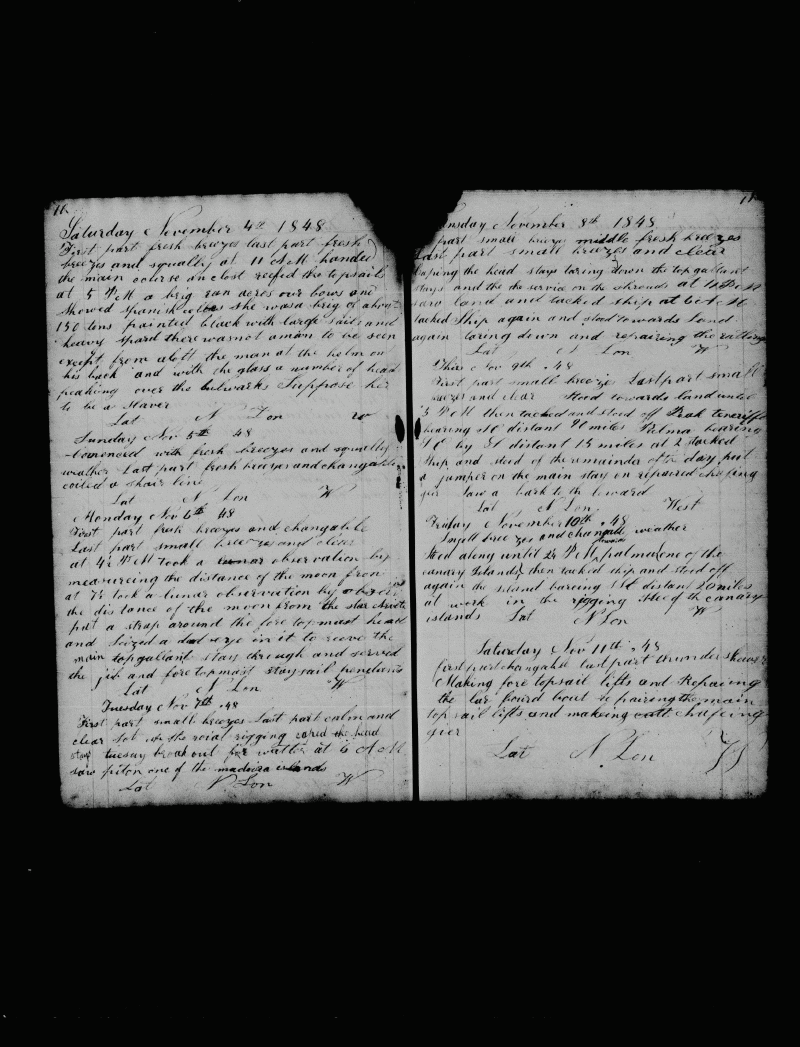 Saturday November 4th 1848
First part fresh breezes last part fresh
breezes and squally at 11 A M handed
the main course an clost reefed the topsails
at 5 P M a brig ran acros our bows and
showed Spanish she was a brig of about
150 tons painted black with large sails and
heavy spard there was not a man to be seen
except from aloft the man at the helm on
his back and with the glass a number of head
peaking over the bulwarks Suppose her
to be a Slaver
Lat N Lon W
Sunday Nov 5th 48
Comenced with fresh breezes and squally
weather Last part fresh breezes and changable
coiled a line
Lat N Lon W
Monday Nov 6th 48
First part fresh breezes and changable
Last part small breezes and clear
at 4 P M took a lunar observation by
measureing the distance of the moon from
at 7 took a lunar observation by
the distance of the moon from the star
put a strap around the fore topmast head
and seized a dead eye in it to reeve the
main topgallant stay through and served
the jib and fore topmast staysail pendants
Lat N Lon W
Tuesday Nov 7th .48
First part small breezes Last part calm and
clear up the roial rigging the head
stay break out for watter at 6 A M
saw one of the madeira islands
Lat N Lon W
November 8th 1848
part small breeze middle fresh breezes
Last part small breezes and clear
the head stays taring down the topgallant
stays and the service on the shrouds at 11 P M
saw land and tacked ship at 6 A M
tacked Ship again and stood towards land
again taring down and repairing the
Lat N Lon W
Thurs Nov 9th .48
First part small breeze Last part small
breezes and clear Stood towards land until
5 P M then tacked and stood off Peak teneriff
bearing distant 90 miles Palma bearing
by distant 15 miles at 2 tacked
Ship and stood of the remainder of the day put
a jumper on the main stay on repaired chafing
gier Saw a bark to the leward
Lat N Lon West
Friday November 10th .48
Small breezes and changall weather
Stod along until P M palma one of the
canary Islands then tacked ship and stood off
again the island bareing distant 20 miles
at work in the rigging of the canary
islands Lat N Lon W
Saturday Nov 11th .48
first part changable last part thunder shower
Making fore topsail lifts and Repairing
the lar board boat repairing the main
top sail lifts and makeing chafeing
gier
Lat N Lon W